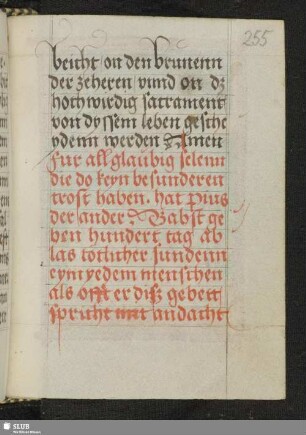 255
beicht on den brunenn
der zeheren vnnd on dz
hochwirdig sacrament
von dyssem leben gesche
ydenn werden Amen
Fur all glaubig selenn
die do keyn besunderen
trost haben. hat Pius
der ander Babst ge
ben hundert tag ab
las totlicher sundenn
eym yedem menschen
als offt er disz gebett
spricht mit andacht
SLUB